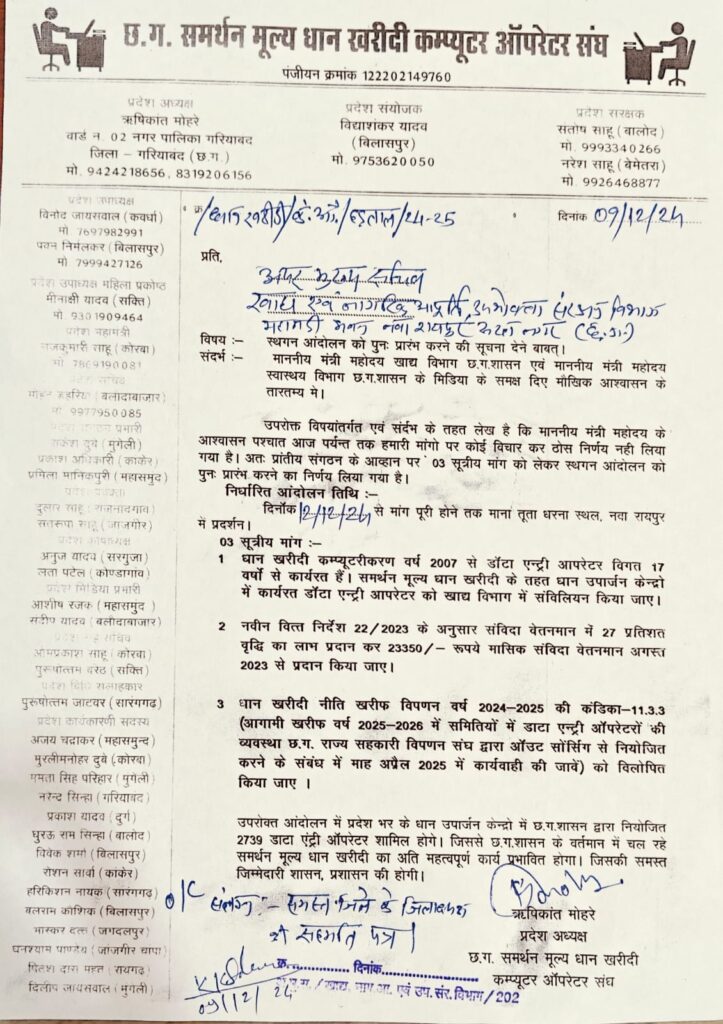 छ.ग. समर्थन मूल्य धान खरीदी कम्प्यूटर ऑपरेटर संघ
पंजीयन क्रमांक 122202149760
प्रदेश अध्यक्ष
ऋषिकांत मोहरे
वार्ड न. 02 नगर पालिका गरियाबद
जिला – गरियाबद (छ.ग.)
मो. 9424218656, 8319206156
प्रदेश संयोजक
विद्याशंकर यादव
(बिलासपुर)
मो. 9753620050
प्रदेश सरक्षक
सतोष साहू (बालोद)
मो. 9993340266
नरेश साहू (बेमेतरा)
मो. 9926468877
प्रदेश उपाध्यक्ष
विनोद जायसवाल (कवर्धा)
मो 7697982991
पवन निर्मलकर (बिलासपुर)
मो 7999427126
प्रदेश उपाध्यक्ष महिला प्रकोष्ठ
मीनाक्षी यादव (सक्ति)
मो 9301909464
प्रदेश महामंत्री
राजकुमारी साहू (कोरबा)
मो 7869190081
(बलौदाबाजार)
मो 9977950085
प्रभारी
(मुंगेली)
प्रकाश अधिकारी (काकेर)
प्रमिला मानिकपुरी (महासमुद)
साहू (राजनादगाव)
सतरूपा साहू (जाजगीर)
अनुज यादव (सरगुजा)
लता पटेल (कोण्डागांव)
प्रदेश मिडिया प्रभारी
आशीष रजक (महासमुद)
सदीप यादव (बलौदाबाजार)
सचिव
ओमप्रकाश साहू (कोरबा)
पुरूषोत्तम बरेठ (सक्ति)
प्रदेश विधि सलाहकार
पुरूषोत्तम जाटवर (सारंगगढ़)
प्रदेश कार्यकारणी सदस्य
अजय चद्राकर (महासमुन्द)
मुरलीमनोहर दुबे (कोरबा)
ममता सिह परिहार (मुगेली)
नरेन्द्र सिन्हा (गरियाबद)
प्रकाश यादव (दुर्ग)
घुरऊ राम सिन्हा (बालोद)
विवेक शर्मा (बिलासपुर)
रोशन सार्वा (काकेर)
हरिकिशन नायक (सारंगगढ़)
बलराम कौशिक (बिलासपुर)
भास्कर दत्त (जगदलपुर)
घनश्याम पाण्डेय (जाजगीर चापा)
दास महत (रायगढ़)
दिलीप जायसवाल (मुगेली)
क्र /धान खरीदी/कं.ऑ./हड़ताल/24-25
दिनांक 09/12/24
प्रति,
अपर मुख्य सचिव
खाद्य एवं नागरिक आपूर्ति उपभोक्ता संरक्षण विभाग
महानदी भवन नवा रायपुर अटल नगर (छ.ग.)
विषय :– स्थगन आंदोलन को पुनः प्रारंभ करने की सूचना देने बाबत्।
संदर्भ :– माननीय मंत्री महोदय खाद्य विभाग छ.ग.शासन एवं माननीय मंत्री महोदय
स्वास्थय विभाग छ.ग.शासन के मिडिया के समक्ष दिए मौखिक आश्वासन के
तारतम्य मे।
उपरोक्त विषयांतर्गत एवं संर्दभ के तहत लेख है कि माननीय मंत्री महोदय के
आश्वासन पश्चात आज पर्यन्त तक हमारी मांगो पर कोई विचार कर ठोस निर्णय नही लिया
गया है। अतः प्रांतीय संगठन के आव्हान पर 03 सूत्रीय मांग को लेकर स्थगन आंदोलन को
पुनः प्रारंभ करने का निर्णय लिया गया है।
निर्धारित आंदोलन तिथि :–
दिनॉक 12/12/24 से मांग पूरी होने तक माना तूता धरना स्थल, नवा रायपुर
में प्रदर्शन।
03 सूत्रीय मांग :–
1 धान खरीदी कम्प्यूटरीकरण वर्ष 2007 से डॉटा एन्ट्री आपरेटर विगत 17
वर्षो से कार्यरत हैं। समर्थन मूल्य धान खरीदी के तहत धान उपार्जन केन्द्रो
में कार्यरत डॉटा एन्ट्री आपरेटर को खाद्य विभाग में संविलियन किया जाए।
2 नवीन वित्त निर्देश 22/2023 के अनुसार संविदा वेतनमान में 27 प्रतिशत
वृद्धि का लाभ प्रदान कर 23350/– रूपये मासिक संविदा वेतनमान अगस्त
2023 से प्रदान किया जाए।
3 धान खरीदी नीति खरीफ विपणन वर्ष 2024–2025 की कंडिका–11.3.3
(आगामी खरीफ वर्ष 2025–2026 में समितियों में डाटा एन्ट्री ऑपरेटरों की
व्यवस्था छ.ग. राज्य सहकारी विपणन संघ द्वारा ऑउट सोर्सिंग से नियोजित
करने के संबंध में माह अप्रैल 2025 में कार्यवाही की जावें) को विलोपित
किया जाए ।
उपरोक्त आंदोलन में प्रदेश भर के धान उपार्जन केन्द्रो में छ.ग.शासन द्वारा नियोजित
2739 डाटा एंट्री ऑपरेटर शामिल होगे। जिससे छ.ग.शासन के वर्तमान में चल रहे
समर्थन मूल्य धान खरीदी का अति महत्वपूर्ण कार्य प्रभावित होगा। जिसकी समस्त
जिम्मेदारी शासन, प्रशासन की होगी।
O/C संलग्न :- समस्त जिले के जिलाध्यक्ष
सहमति पत्र।
ऋषिकांत मोहरे
प्रदेश अध्यक्ष
छ.ग. समर्थन मूल्य धान खरीदी
कम्प्यूटर ऑपरेटर संघ
09/12/24
क्र. दिनांक
छ.ग. / खाद्य, नाग.आ. एवं उप.संर. विभाग / 202